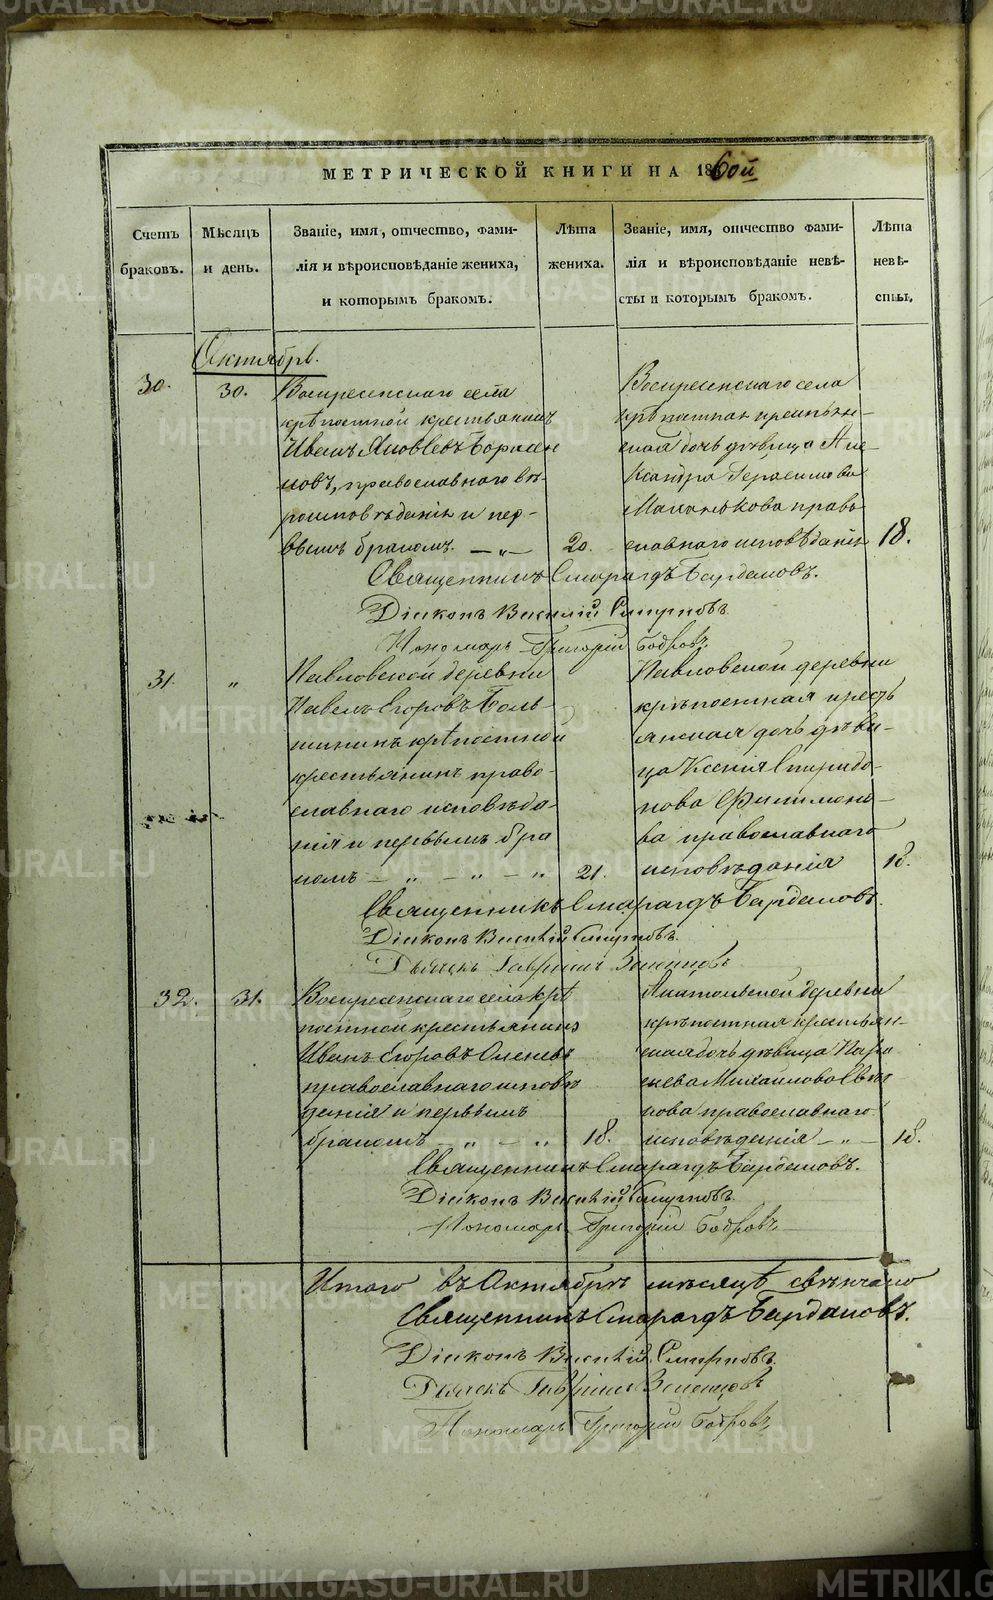 МЕТРИЧЕСКОЙ КНИГИ НА 1860й
Счетъ браковъ.
Мѣсяцъ и день.
Званіе, имя, отчество, фами-
лія и вѣроисповѣданіе жениха,
и которымъ бракомъ.
Лѣта жениха.
Званіе, имя, отчество фами-
лія и вѣроисповѣданіе невѣ-
сты и которымъ бракомъ.
Лѣта невѣ-
сты.
Октябрь.
30.
30.
Воскресенскаго села
крѣпостной крестьянинъ
Иванъ Яковлевъ
православнаго вѣ-
роисповѣданія и пер-
вымъ бракомъ. — „ —
20.
Воскресенскаго села
крѣпостная крестьян-
ская дочь дѣвица Але-
ксандра Герасимова
Маканькова право
славнаго исповѣданія
18.
Священникъ Смарагдъ Бардамовъ.
Діаконъ Василій Смирновъ.
Пономарь Григорій Бобровъ.
31.
„
Павловской деревни
Павелъ Егоровъ Боль-
шикинъ крѣпостной
крестьянинъ право-
славнаго исповѣда-
нія и первымъ бра
комъ — „ — „ — „
21.
Павловской деревни
крѣпостная кресть
янская дочь дѣви-
ца Ксенія Спиридо-
нова Филимоно-
ва православнаго
исповѣданія
18.
Священникъ Смарагдъ Бардамовъ.
Діаконъ Василій Смирновъ.
Дьячекъ Гавріилъ
32.
31.
Воскресенскаго села крѣ
постной крестьянинъ
Иванъ Егоровъ Оленевъ
православнаго исповѣ
данія и первымъ
бракомъ — „ — „
18.
деревни
крѣпостная крестьян-
ская дочь дѣвица Пара
скева Михайлова
православнаго
исповѣданія — „ —
18.
Священникъ Смарагдъ Бардамовъ.
Діаконъ Василій Смирновъ.
Пономарь Григорій Бобровъ.
Итого въ Октябрѣ мѣсяцѣ свѣнчано
Священникъ Смарагдъ Бардамовъ.
Діаконъ Василій Смирновъ.
Дьячекъ Гавріилъ
Пономарь Григорій Бобровъ.
METRIKI.GASO-URAL.RU